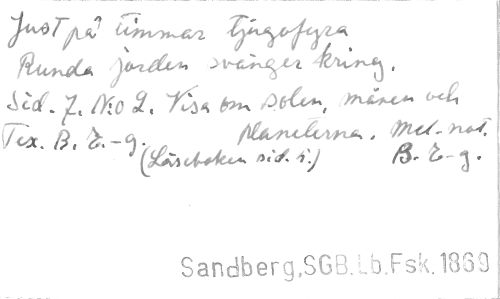 Just på timmar tjugofyra
Runda jorden svänger kring.
Sid. 7. N:o 2. Visa om solen, månen och
Tex. B. E-g. planeterna. Mel.-not.
(Läseboken sid. 1.) B. E-g.
Sandberg,SGB.Lb.Fsk.1869